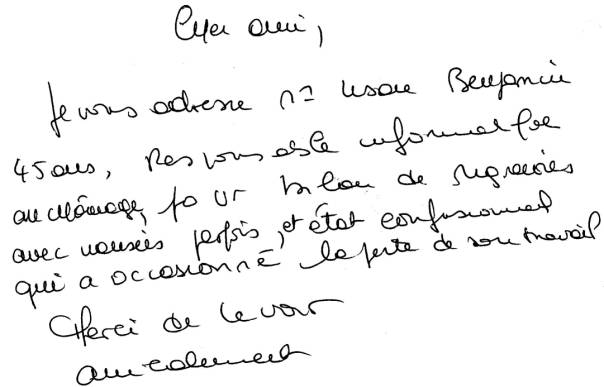 Cher ami,
Je vous adresse Mr Usson Benjamin
45 ans, Responsable informatique
au chômage, pour bilan de migraines
avec nausées parfois, et état confusionnel
qui a occasionné la perte de son travail
Merci de le voir
amicalement